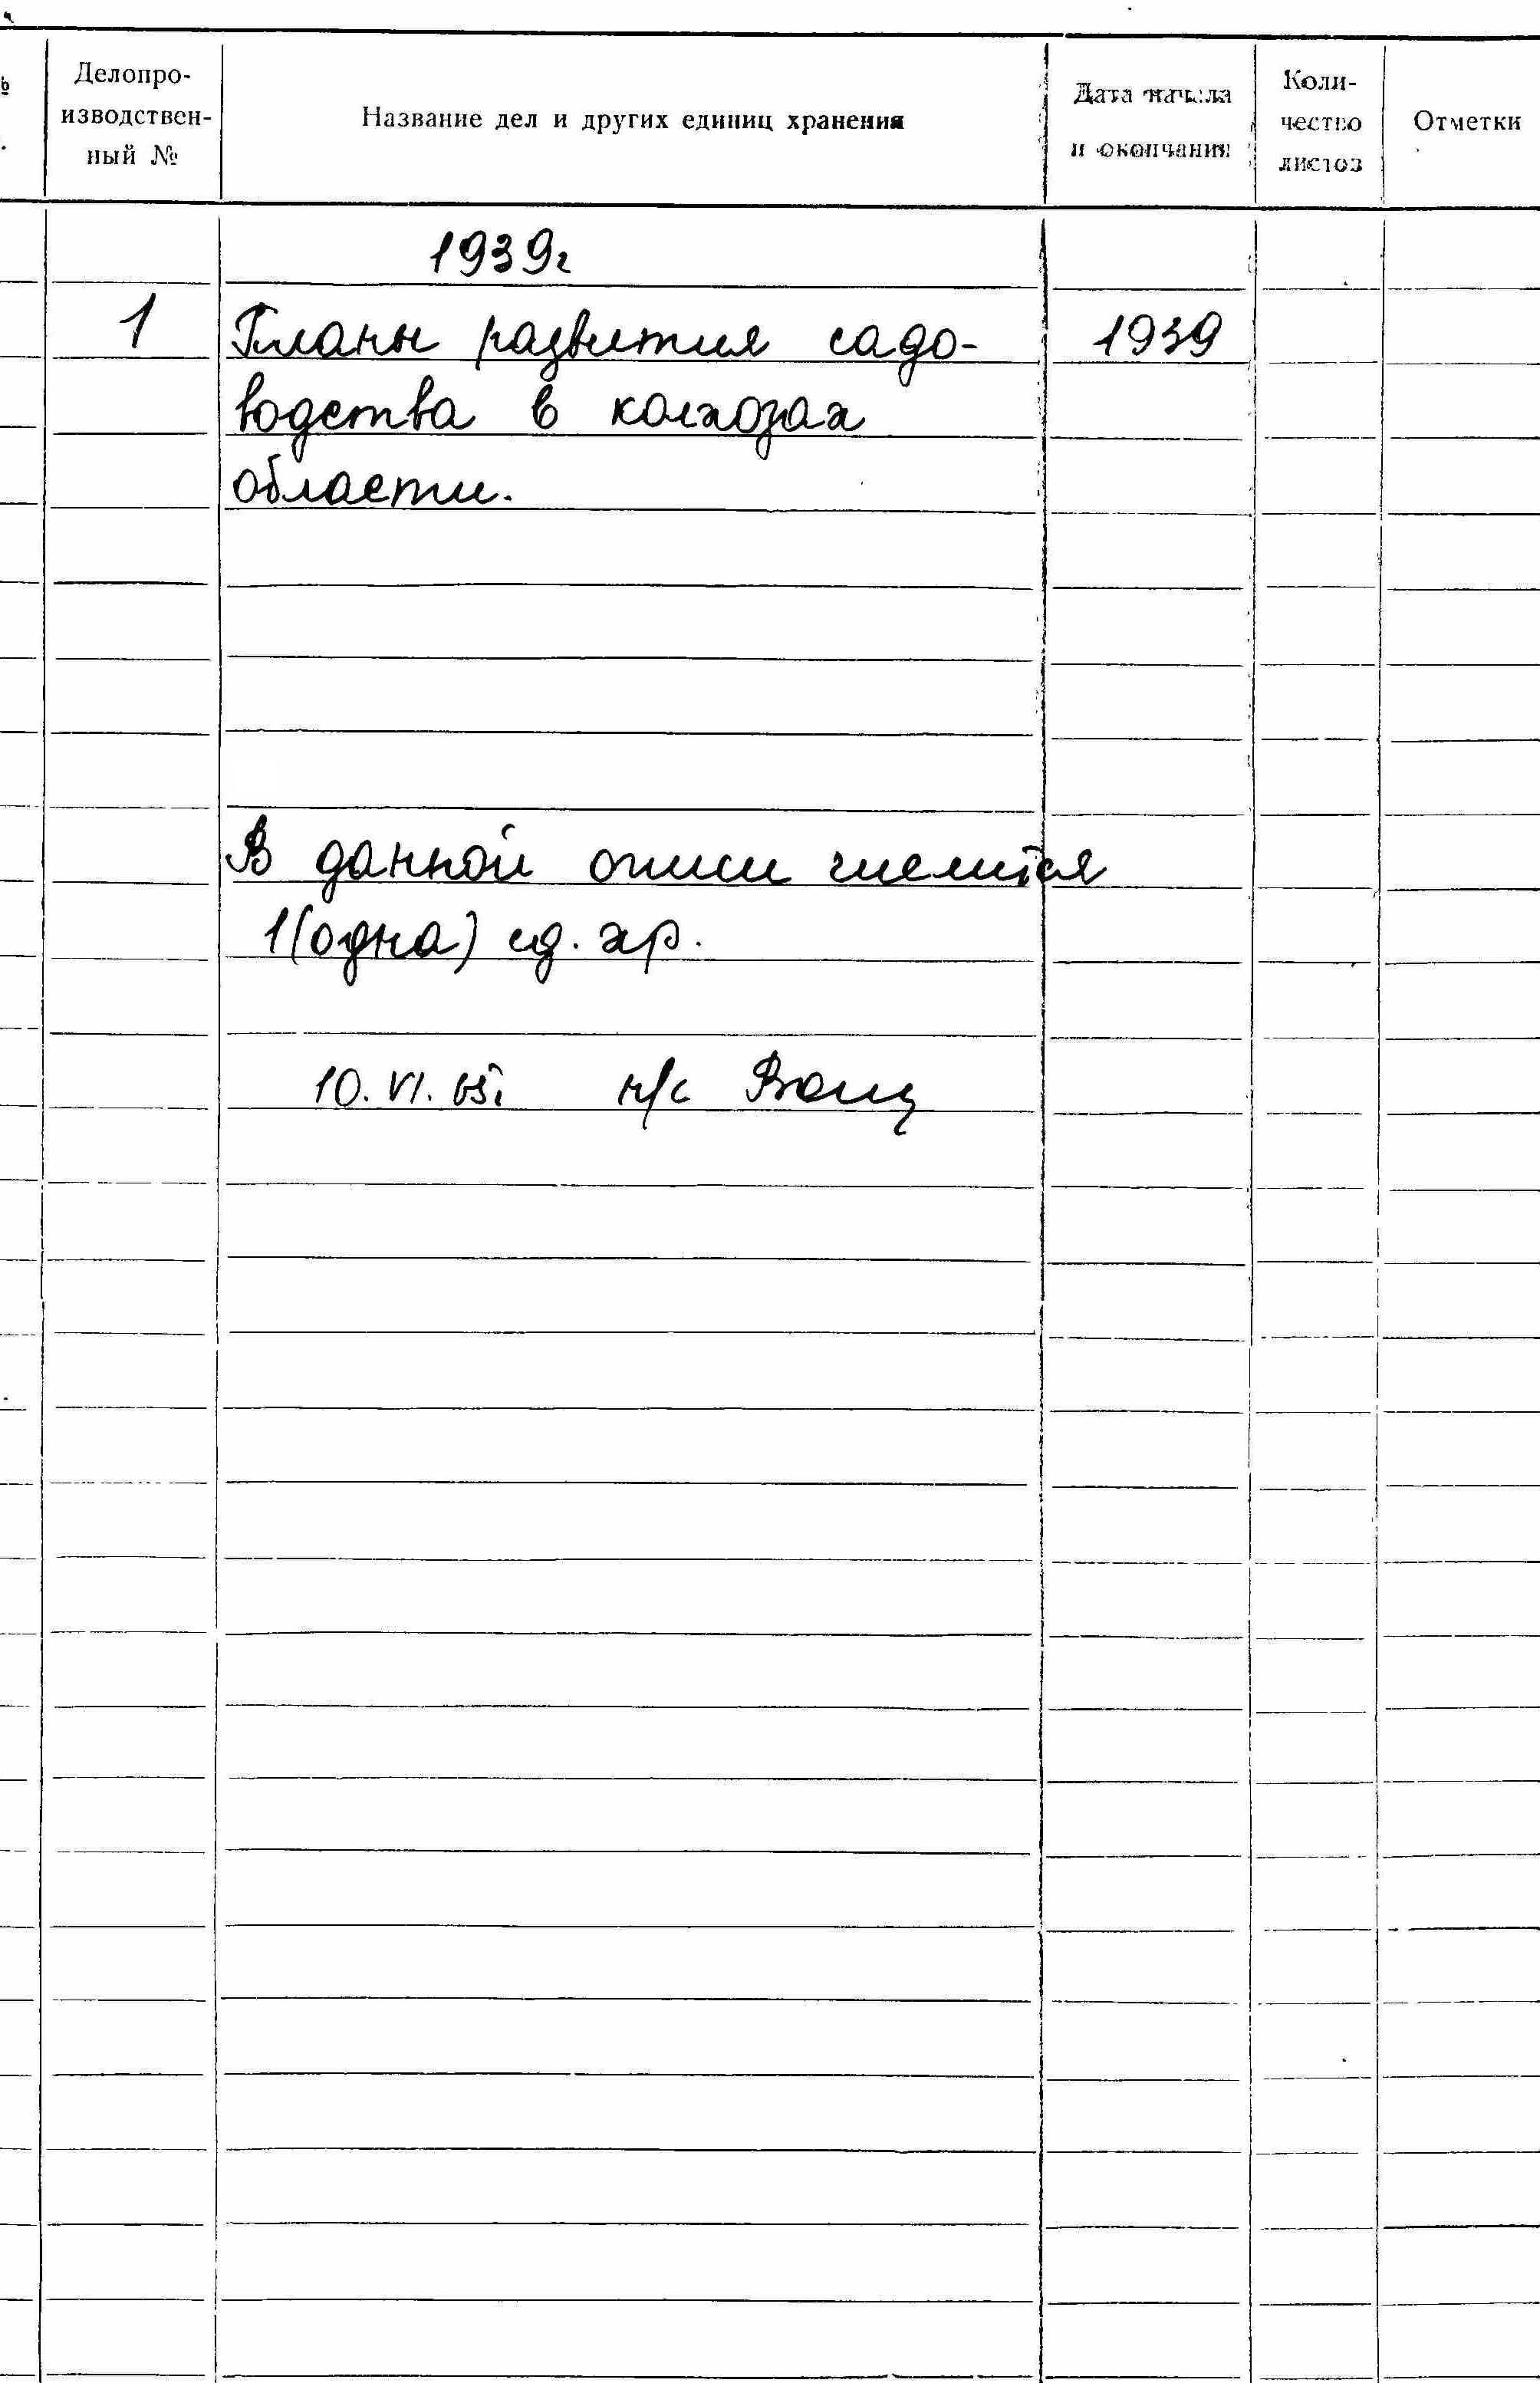 №
Делопро-
изводствен-
ный №
Название дел и других единиц хранения
Дата начала
и окончания
Коли-
чество
листов
Отметки
1939г
1
Планы развития садо-
1939
водства в колхозах
области.
В данной описи числится
1(одна) ед. хр.
10.VI.65г н/с